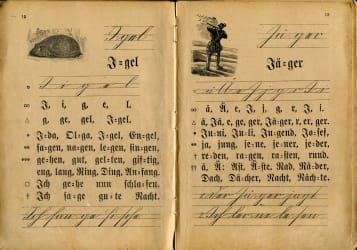 12
Igel
I=gel
I, i, g, e, l.
g, ge, gel, I=gel.
I=da, Ol=ga, I=gel, En=gel,
sa=gen, na=gen, le=gen, sin=gen,
ge=hen, gut, gel=ten, gif=tig,
eng, lang, Ring, Ding, An=fang.
Ich ge=he nun schla=fen.
Ich sa=ge gu=te Nacht.
13
Jä ger
Jä=ger
ä, Ä, e, J, j, g, r, J, i.
ä, Jä, e, ge, ger, Jä=ger, r, er, ger.
Ju=ni, Ju=li, Ju=gend, Jo=sef,
ja, jung, je=ne, je=ner, je=der,
re=den, ra=gen, ra=sten, rund.
ä, Ä: Ast, Ä=ste, Rad, Rä=der,
Dach, Dä=cher, Nacht, Näch=te.
Der Jä ger jagt
Ich ler ne le sen